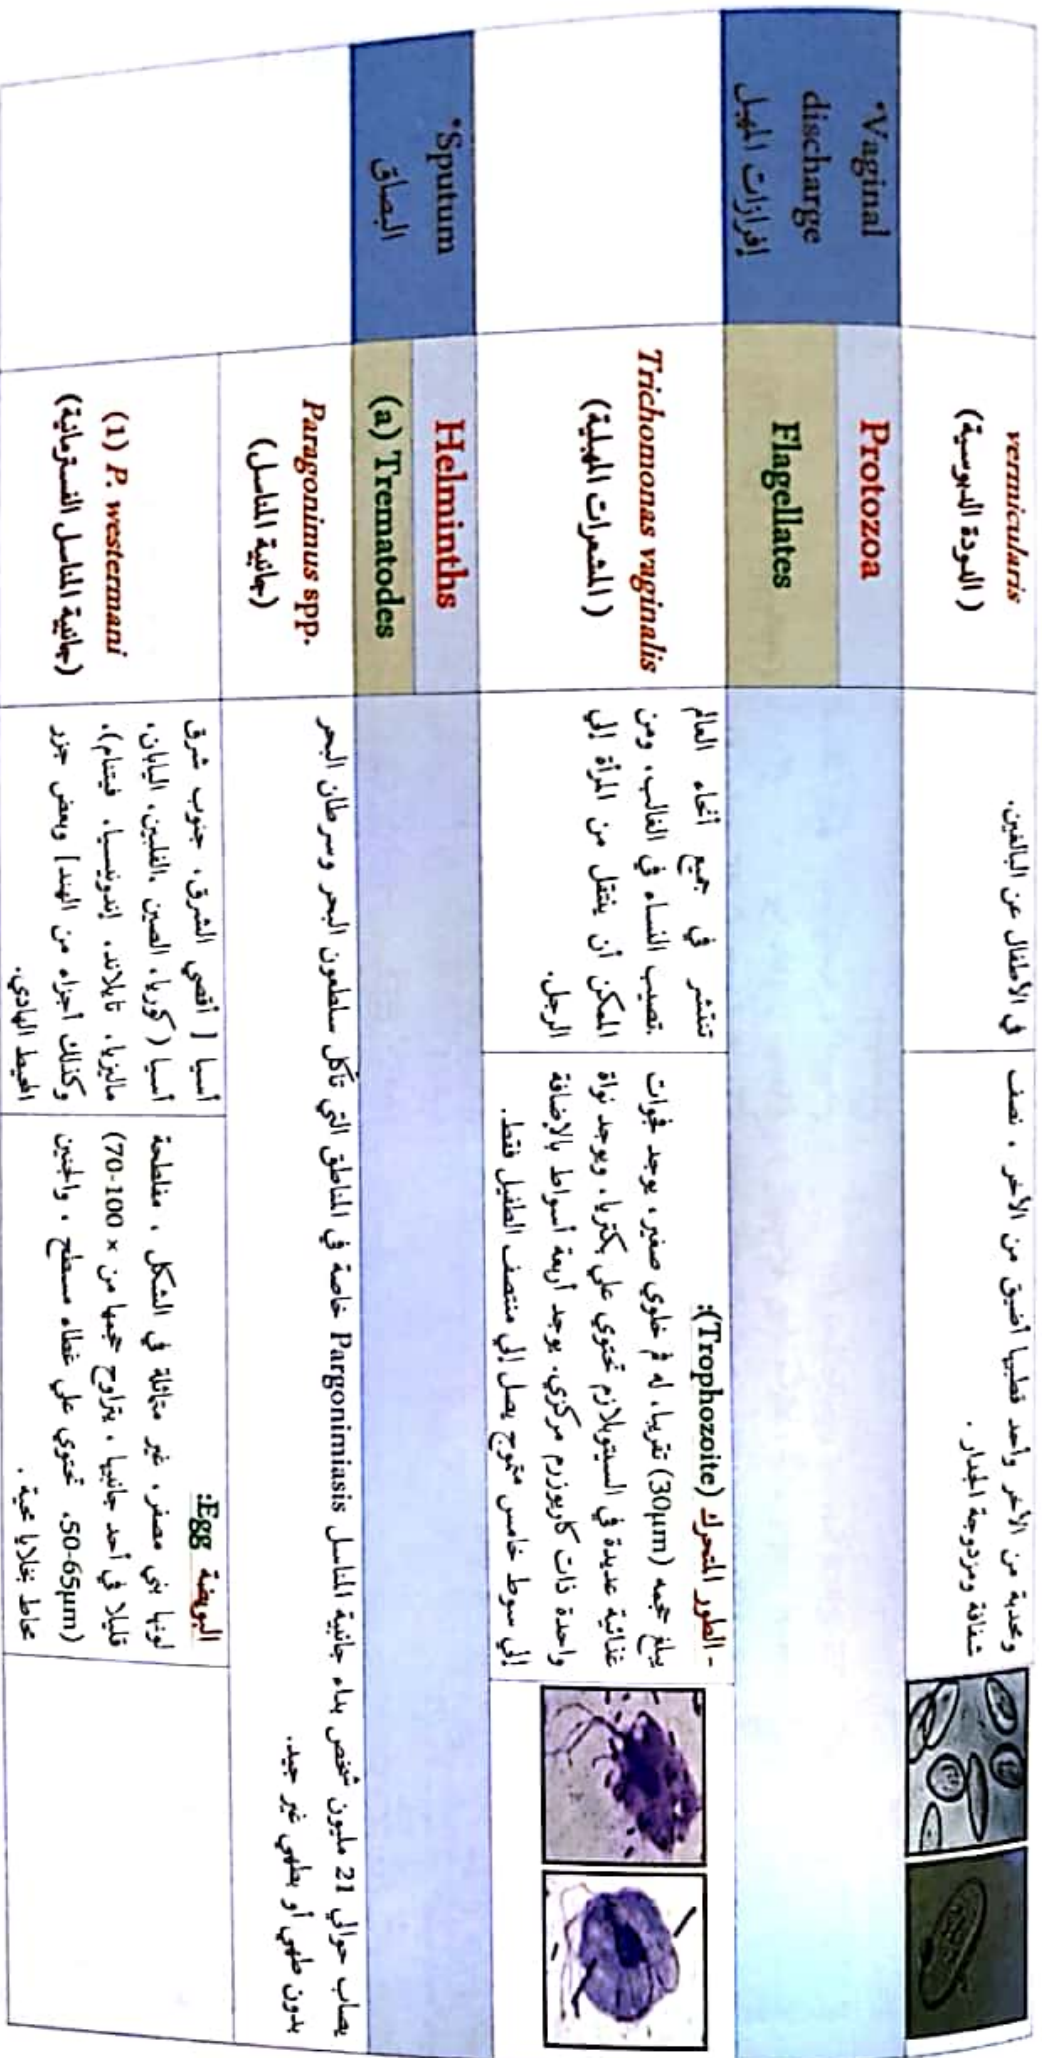 vermicularis
(الدودة الدبوسية )
في الأطفال عن البالغين.
ومحدبة من الأخر وأحد قطبيا أضيق من الأخر ، نصف
شفافة ومزدوجة الجدار .
*Vaginal
discharge
إفرازات المهبل
Protozoa
Flagellates
Trichomonas vaginalis
( المشعرات المهبلية)
تنتشر في جميع أنحاء العالم
.تصيب النساء في الغالب، ومن
الممكن أن ينتقل من المرأة إلي
الرجل.
- الطور المتحرك (Trophozoite):
يبلغ حجمه (30µm) تقريبا، له فم خلوي صغير، يوجد فجوات
غذائية عديدة في السيتوبلازم تحتوي علي بكتريا، ويوجد نواة
واحدة ذات كاريوزرم مركزي. يوجد أربعة أسواط بالإضافة
إلي سوط خامس متموج يصل إلي منتصف الطفيل فقط.
*Sputum
البصاق
Helminths
(a) Trematodes
Paragonimus spp.
(جانبية المناسل)
يصاب حوالي 21 مليون شخص بداء جانبية المناسل Pargonimiasis خاصة في المناطق التي تأكل سلطعون البحر وسرطان البحر
بدون طهي أو بطهي غير جيد.
(1) P. westermani
(جانبية المناسل الفسترمانية)
أسيا [ أقصي الشرق، جنوب شرق
أسيا ( كوريا، الصين ،الفلبين، اليابان،
ماليزيا، تايلاند، إندونيسيا، فيتنام)،
وكذلك أجزاء من الهند] وبعض جزر
المحيط الهادي.
البويضة Egg:
لونها بني مصفر، غير متماثلة في الشكل ، مفلطحة
قليلا في أحد جانبيها ، يتراوح حجمها من × 100-70)
(50-65µm، تحتوي علي غطاء مسطح ، والجنين
محاط بخلايا محية .